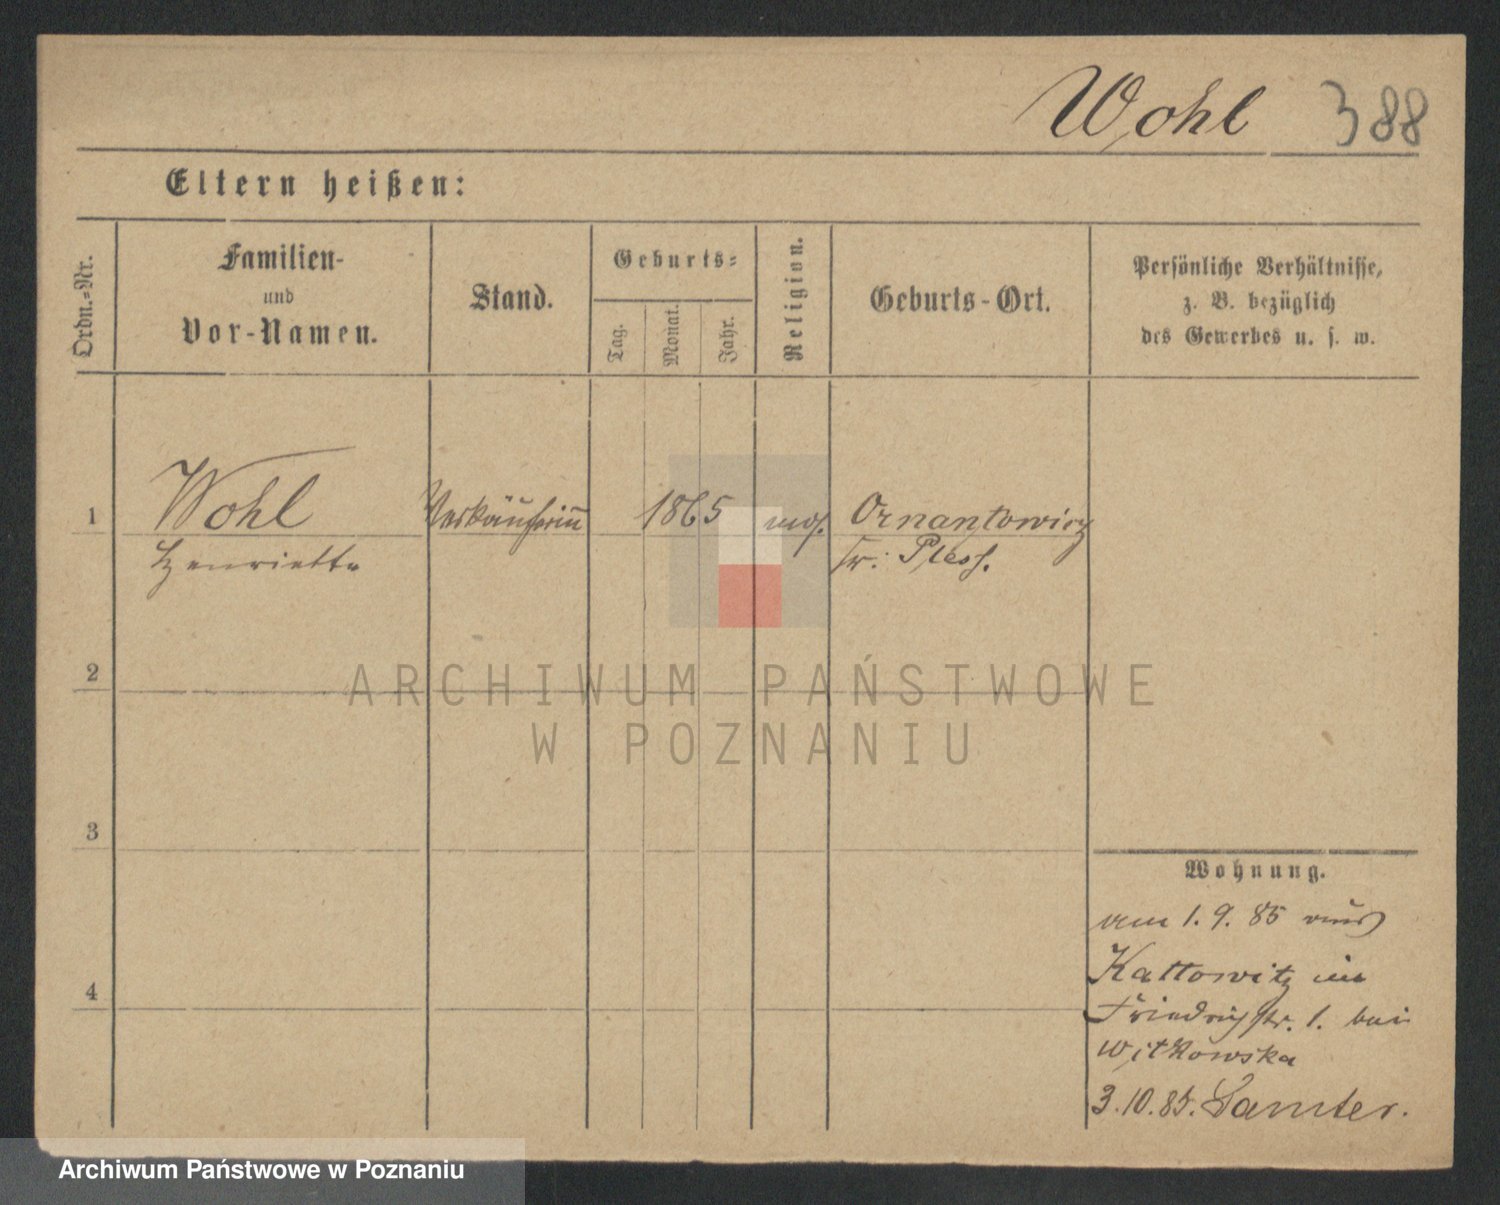 Wohl 388
Eltern heißen:
Ordn.-Nr.
Familien-
und
Vor-Namen.
Stand.
Geburts-
Tag.
Monat.
Jahr.
Religion.
Geburts-Ort.
Persönliche Verhältnisse,
z. B. bezüglich
des Gewerbes u. s. w.
1 Wohl Verkäuferin 1865 mos. Ornantowicz
Henriette Kr: Pless.
2
3
4
Wohnung.
am 1. 9. 85 aus
Kattowitz in
Friedrichstr. 1. bei
Witkowska
3.10.85. Samter.
ARCHIWUM PAŃSTWOWE
W POZNANIU
Archiwum Państwowe w Poznaniu